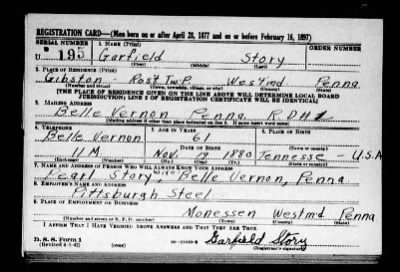 REGISTRATION CARD—(Men born on or after April 28, 1877 and on or before February 16, 1897)
SERIAL NUMBER 1. NAME (Print) ORDER NUMBER
U 195 Garfield Story
(First) (Middle) (Last)
2. PLACE OF RESIDENCE (Print)
Gibston - Rost Twp. Westmd Penna
(Number and street) (Town, township, village, or city) (County) (State)
[THE PLACE OF RESIDENCE GIVEN ON THE LINE ABOVE WILL DETERMINE LOCAL BOARD
JURISDICTION; LINE 2 OF REGISTRATION CERTIFICATE WILL BE IDENTICAL]
3. MAILING ADDRESS
Belle Vernon Penna R.D#2
[Mailing address if other than place indicated on line 2. If same insert word same]
4. TELEPHONE 5. AGE IN YEARS 6. PLACE OF BIRTH
Belle Vernon 61
DATE OF BIRTH (Town or county)
11M Nov. 19 1880 Tennesse - U.S.A
(Exchange) (Number) (Mo.) (Day) (Yr.) (State or country)
7. NAME AND ADDRESS OF PERSON WHO WILL ALWAYS KNOW YOUR ADDRESS
Pearl Story wife Belle Vernon, Penna
8. EMPLOYER'S NAME AND ADDRESS
Pittsburgh Steel
9. PLACE OF EMPLOYMENT OR BUSINESS
Monessen Westmd Penna
(Number and street or R. F. D. number) (Town) (County) (State)
I AFFIRM THAT I HAVE VERIFIED ABOVE ANSWERS AND THAT THEY ARE TRUE.
D. S. S. Form 1
(Revised 4-1-42) (over) Garfield Story
(Registrant's signature)